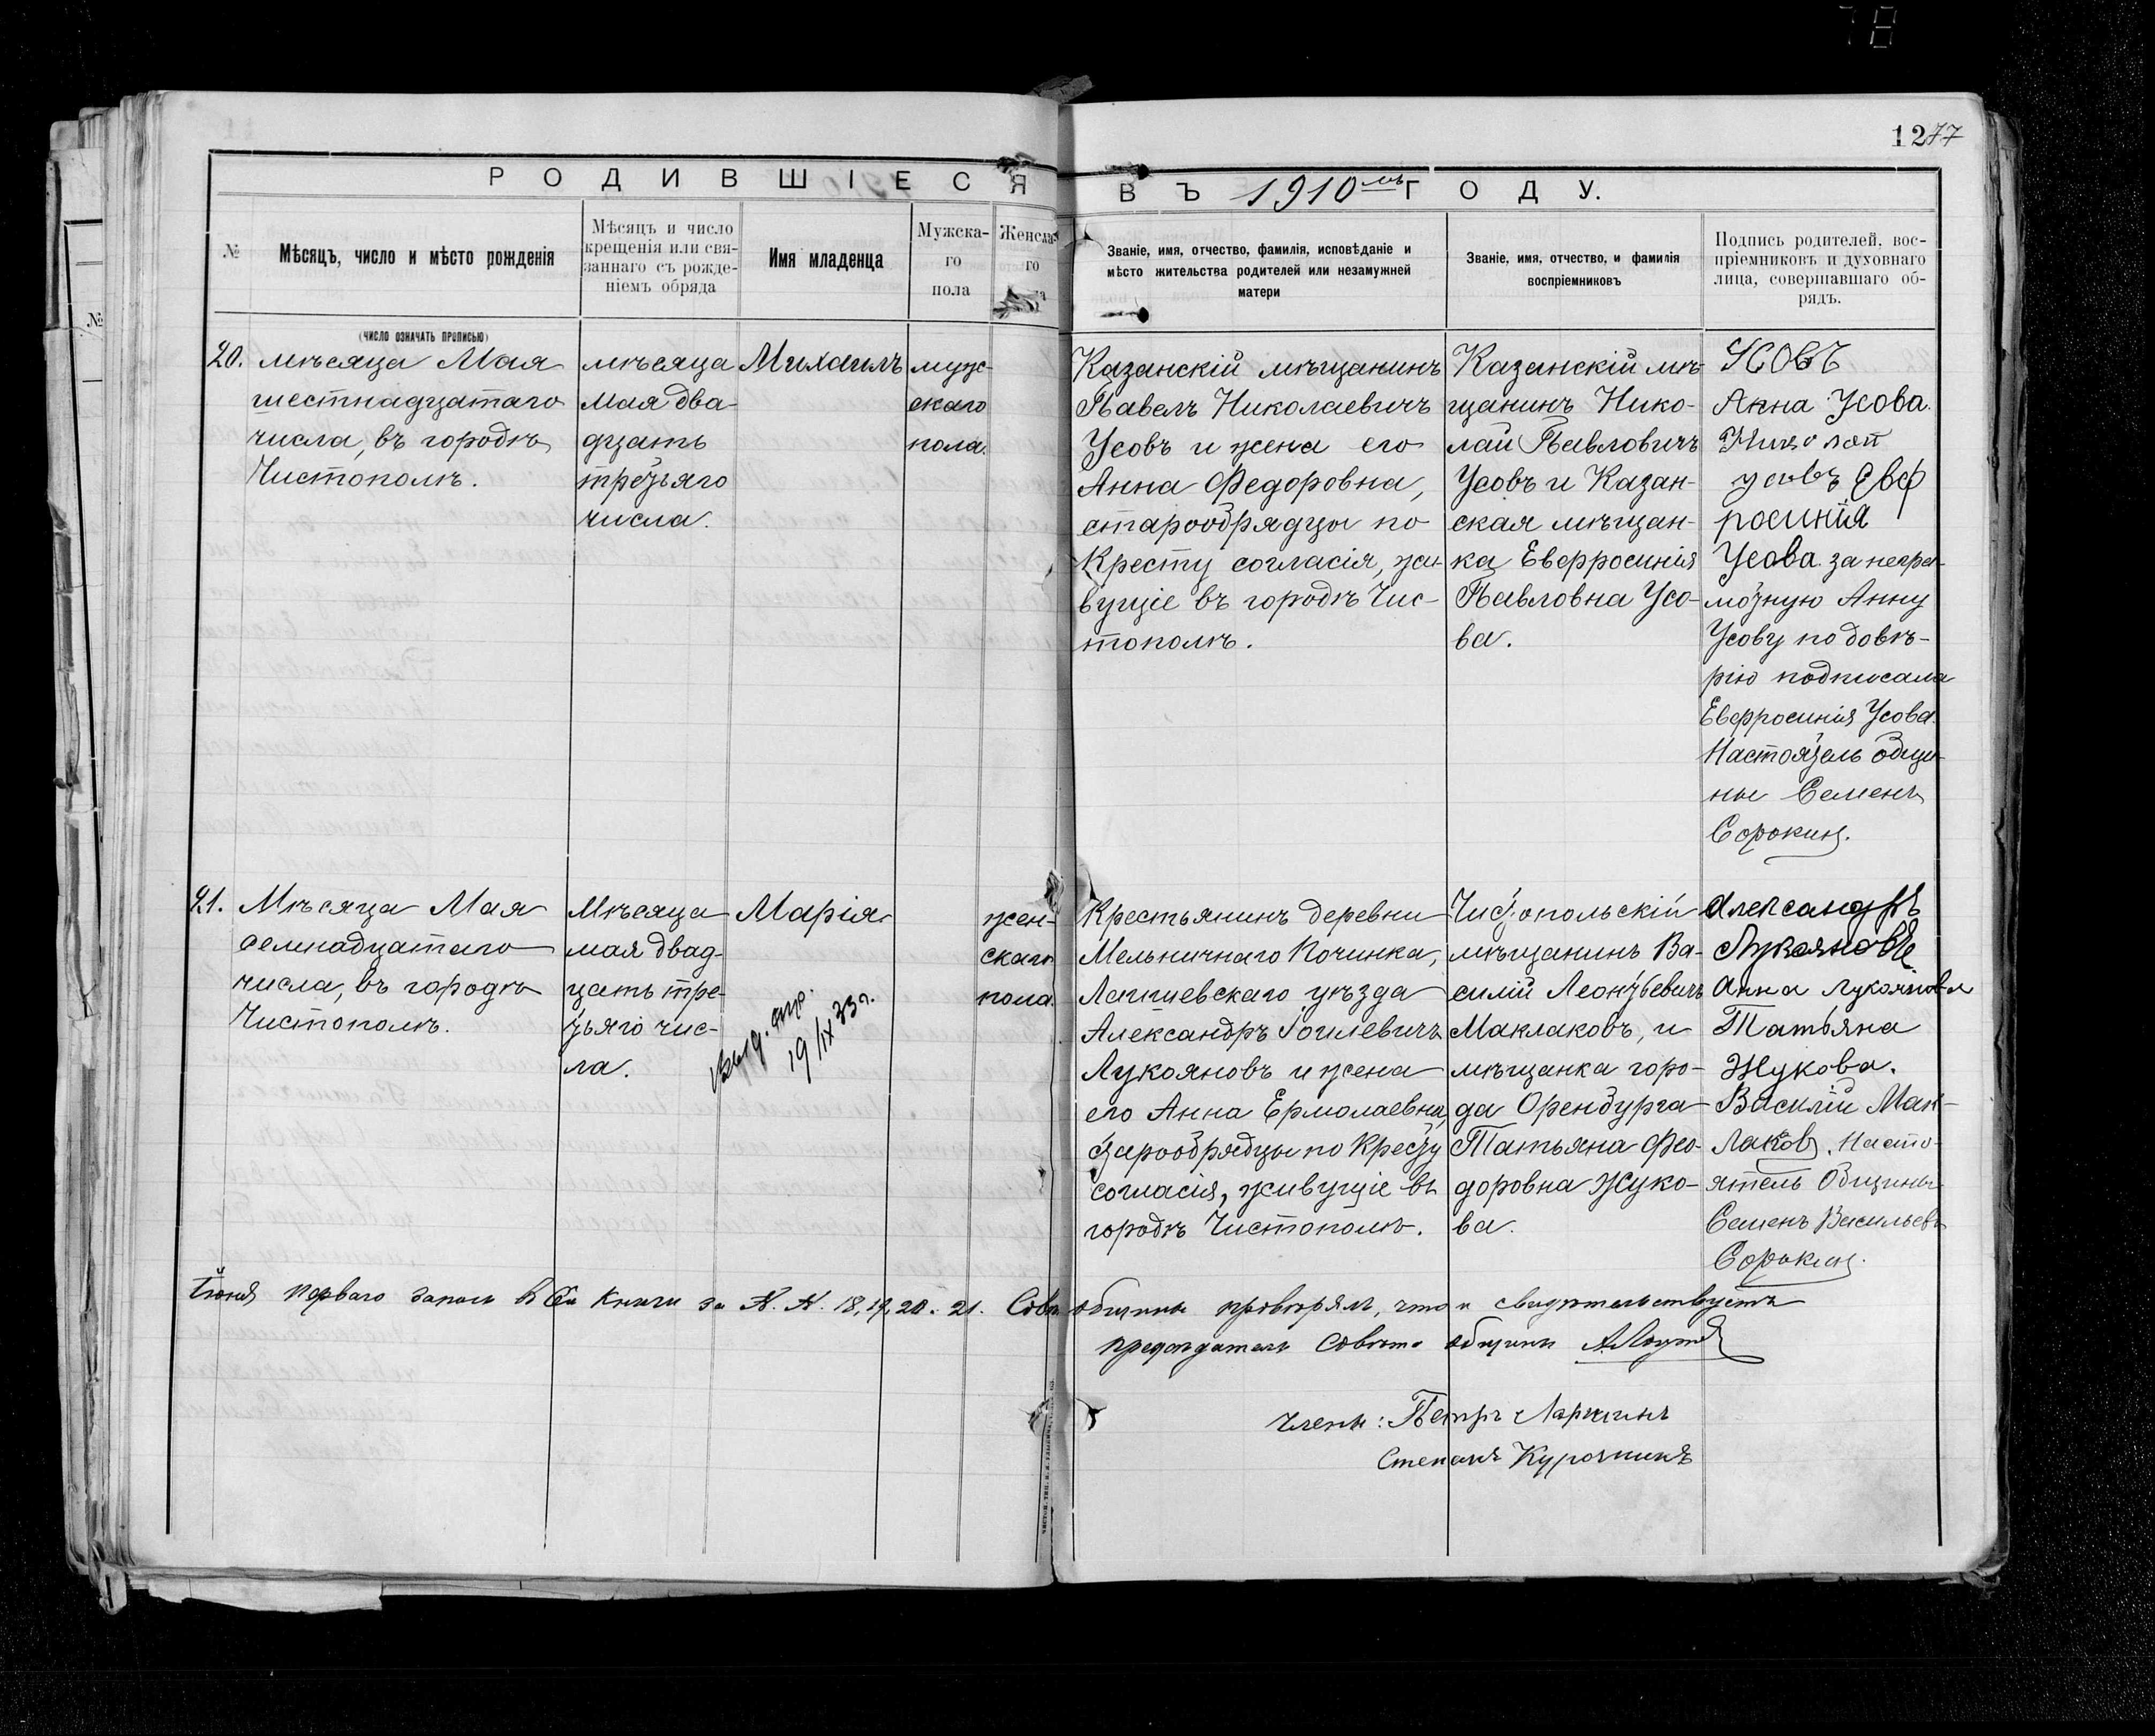 78
1277
РОДИВШІЕСЯ ВЪ 1910мъ ГОДУ.
№
Мѣсяцъ, число и мѣсто рожденія
(число означать прописью)
Мѣсяцъ и число
крещенія или свя-
заннаго съ рожде-
ніемъ обряда
Имя младенца
Мужска-
го
пола
Женска-
го
Званіе, имя, отчество, фамилія, исповѣданіе и
мѣсто жительства родителей или незамужней
матери
Званіе, имя, отчество, и фамилія
воспріемниковъ
Подпись родителей, вос-
пріемниковъ и духовнаго
лица, совершавшаго об-
рядъ.
№
20.
мѣсяца Мая
шестнадцатаго
числа, въ городѣ
Чистополѣ.
мѣсяца
мая два-
дцать
третьяго
числа.
Михаилъ
муж-
скаго
пола.
Казанскій мѣщанинъ
Павелъ Николаевичъ
Усовъ и жена его
Анна Федоровна,
старообрядцы по
Кресту согласія, жи-
вущіе въ городѣ Чис-
тополѣ.
Казанскій мѣ-
щанинъ Нико-
лай Павловичъ
Усовъ и Казан-
ская мѣщан-
ка Евфросинія
Павловна Усо-
ва.
Усовъ
Анна Усова.
Николай
усовъ Евф
росинія
Усова. за негра-
мотную Анну
Усову по довѣ-
рію подписала
Евфросинія Усова.
Настоятель общи-
ны Семенъ
Сорокин.
21.
Мѣсяца Мая
семнадцатаго
числа, въ городѣ
Чистополѣ.
Мѣсяца
мая двад-
цать тре-
тьяго чис-
ла.
Марія
выд. спр.
19/IX 33 г.
жен-
скаго
пола.
Крестьянинъ деревни
Мельничнаго Починка,
Лаишевскаго уѣзда
Александръ
Лукояновъ и жена
его Анна Ермолаевна,
старообрядцы по Кресту
согласія, живущіе въ
городѣ Чистополѣ.
Чистопольскій
мѣщанинъ Ва-
силій Леонтьевичъ
Маклаковъ, и
мѣщанка горо-
да Оренбурга
Татьяна Фео-
доровна Жуко-
ва.
Александръ
Лукояновъ
Анна Лукоянова
Татьяна
Жукова.
Василій Мак-
лаков. Насто-
ятель Общины
Семенъ Васильевъ
Сорокин.
Іюня перваго запись в сей книги за №. №. 18, 19, 20. 21. Совѣтъ общины провѣрялъ, что и свидѣтельствуетъ
предсѣдатель Совѣта общины
Члены: Петръ Ларинъ
Степанъ Курочкинъ